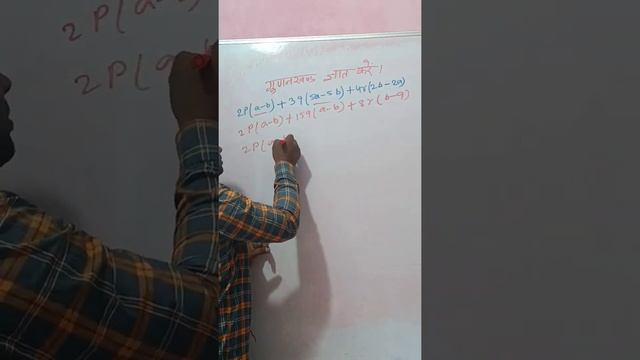 गुणनखण्ड ज्ञात करें।
2P(a-b)+3q(5a-5b)+4r(2b-2a)
2P(a-b)+15q(a-b)+8r(b-a)
2P(a